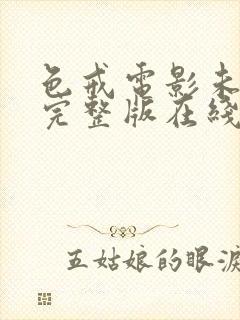 色戒電影未
完整版在綫
五姑娘的眼淚